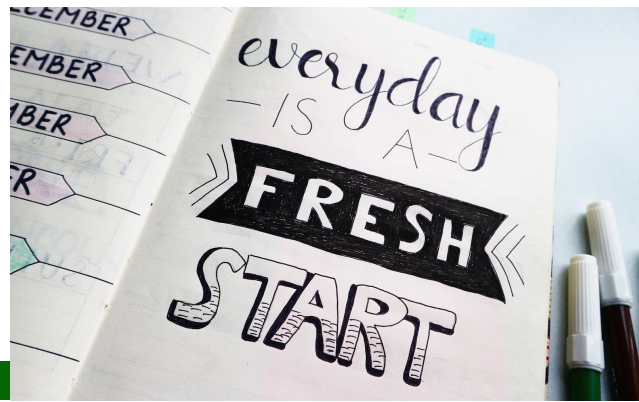 CEMBER
EMBER
MBER
ER
everyday
— IS A —
FRESH
START